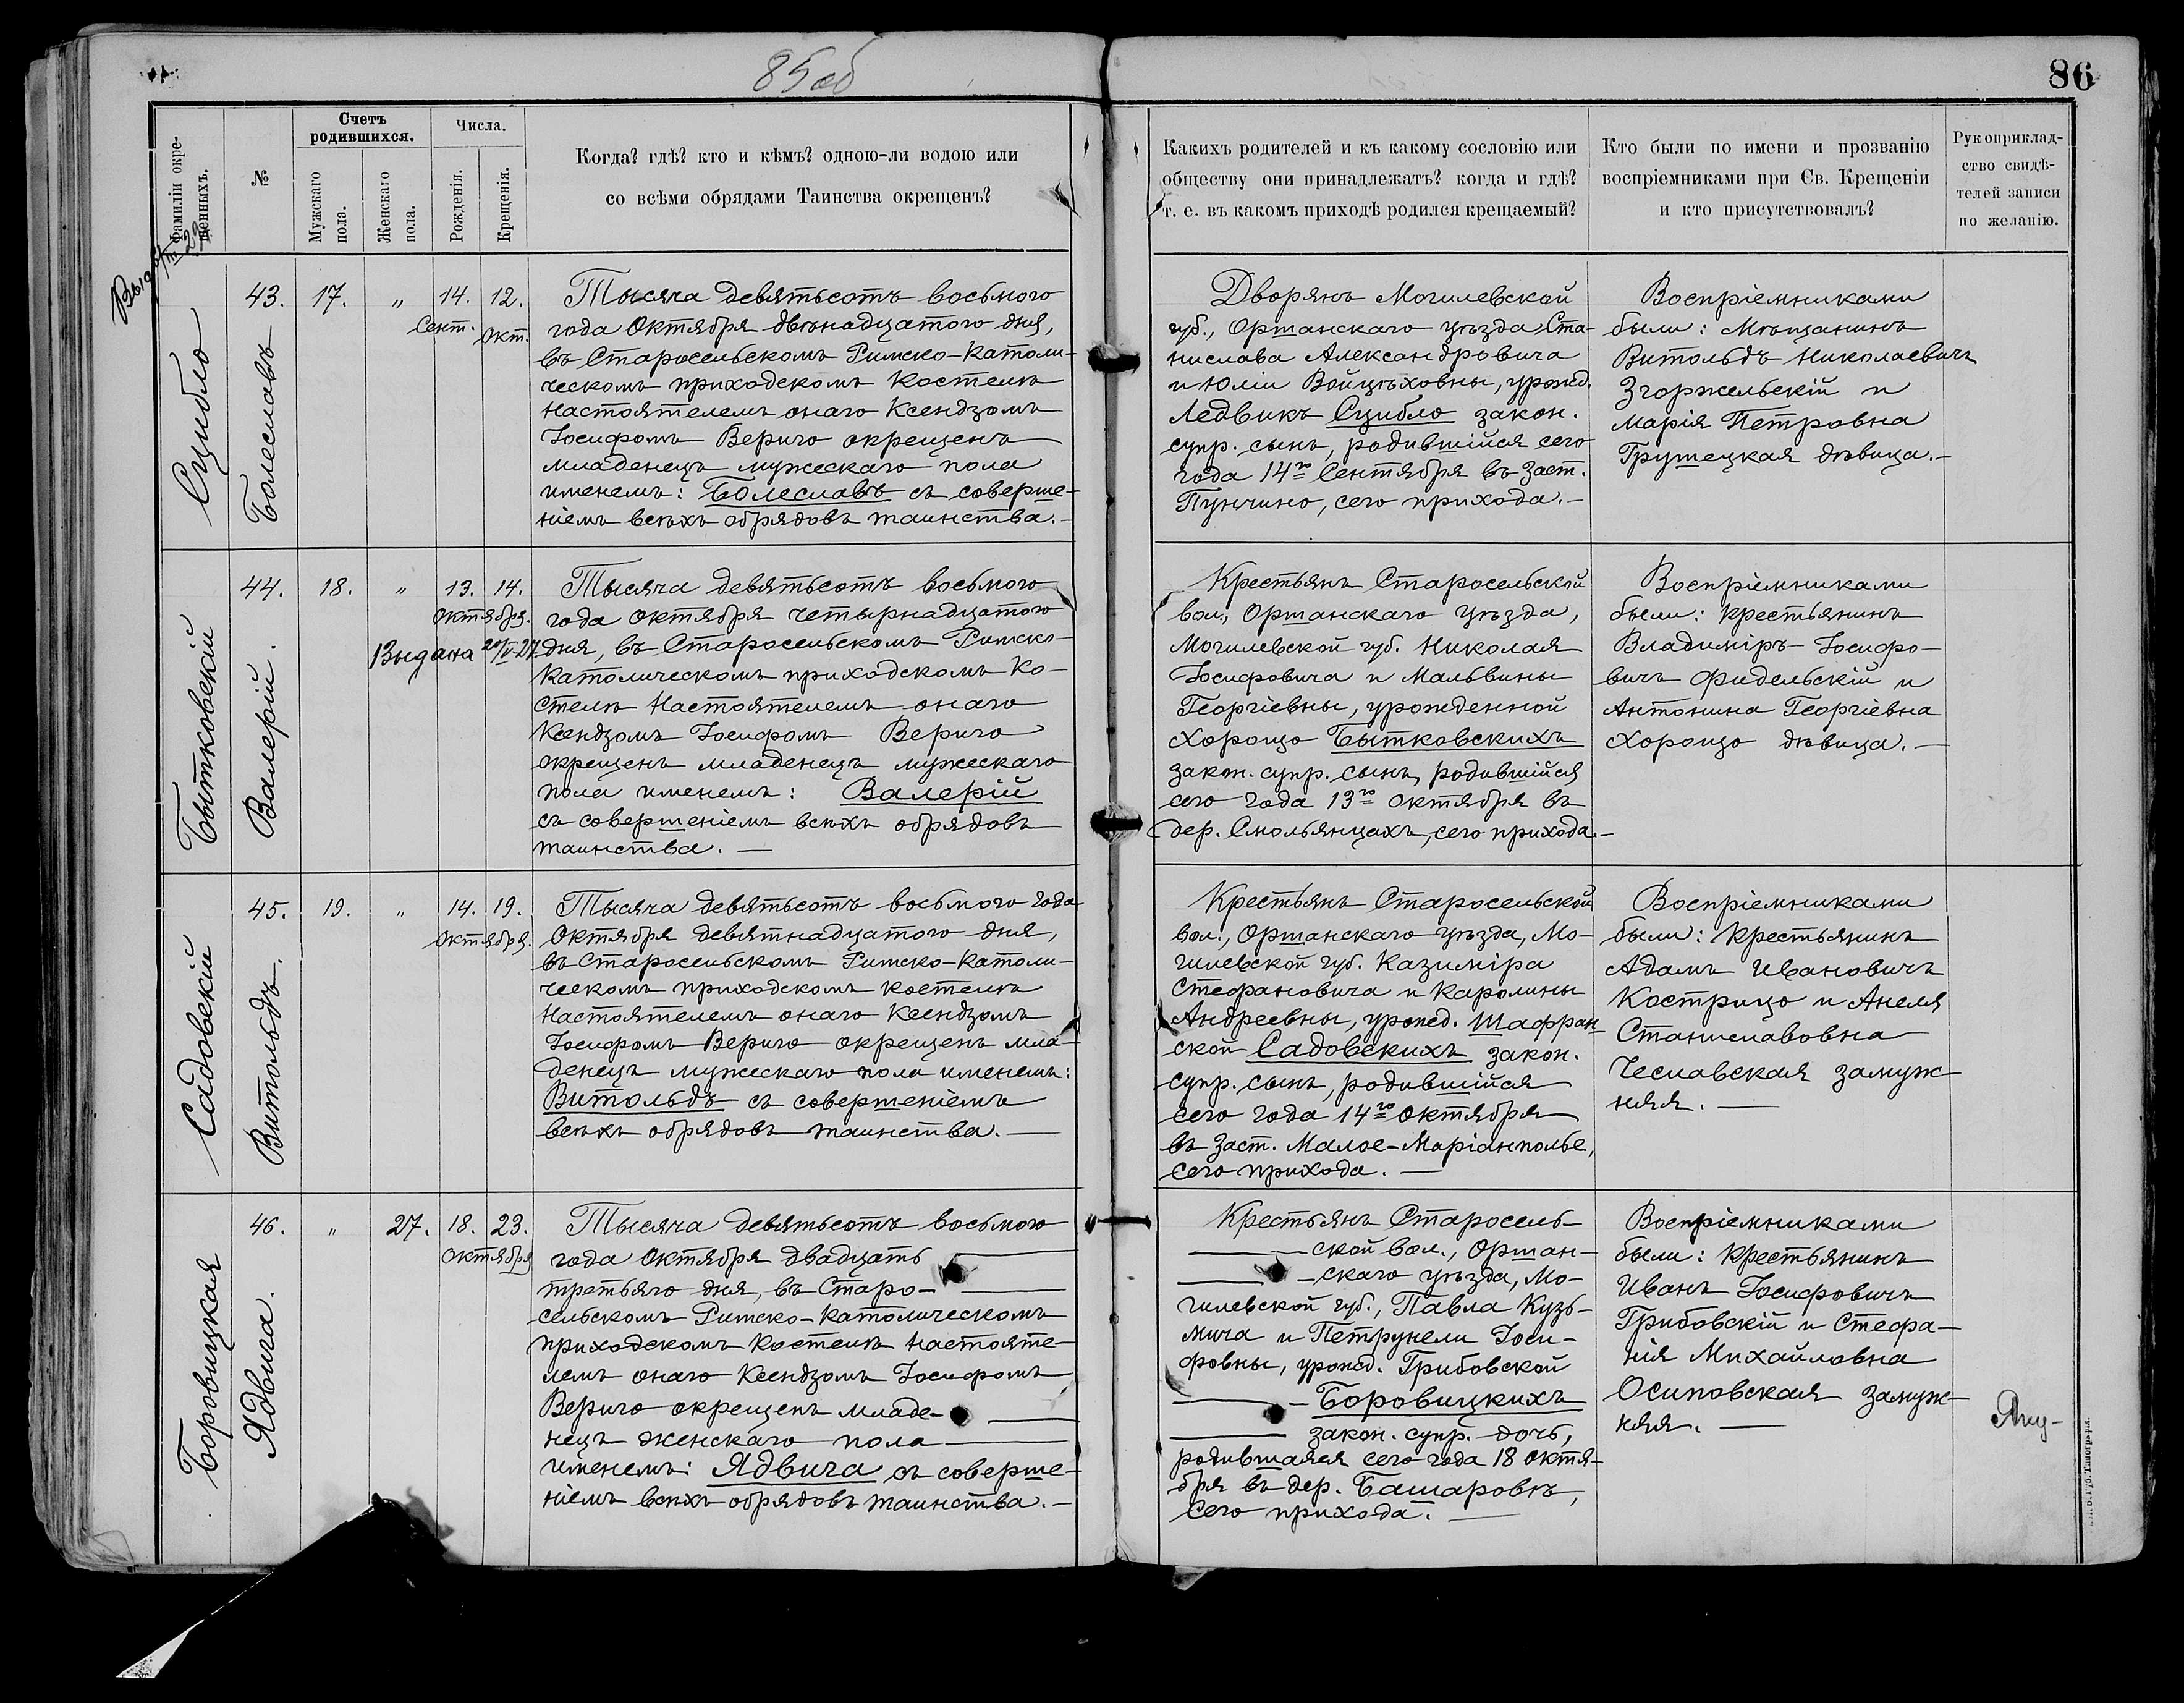 85об
86
Фамиліи окре-
щенныхъ.
№
Счетъ
родившихся.
Мужскаго
пола.
Женскаго
пола.
Числа.
Рожденія.
Крещенія.
Когда? гдѣ? кто и кѣмъ? одною-ли водою или
со всѣми обрядами Таинства окрещенъ?
Какихъ родителей и къ какому сословію или
обществу они принадлежатъ? когда и гдѣ?
т. е. въ какомъ приходѣ родился крещаемый?
Кто были по имени и прозванію
воспріемниками при Св. Крещеніи
и кто присутствовалъ?
Рукоприклад-
ство свидѣ-
телей записи
по желанію.
Сцибло
Болеславъ
43. 17. „ 14. 12.
Сент. Окт.
Тысяча девятьсотъ восьмого
года Октября двѣнадцатого дня,
въ Старосельскомъ Римско-Католи-
ческомъ приходскомъ Костелѣ
Настоятелемъ онаго Ксендзомъ
Іосифомъ Вериго окрещенъ
младенецъ мужескаго пола
именемъ: Болеславъ съ соверше-
ніемъ всѣхъ обрядовъ таинства.-
Дворянъ Могилевской
губ., Оршанскаго уѣзда Ста-
нислава Александровича
и Юліи Войцѣховны, урожд.
Ледвикъ Сцибло закон.
супр. сынъ, родившійся сего
года 14го Сентября въ заст.
Пунчино, сего прихода.-
Воспріемниками
были: Мѣщанинъ
Витольдъ Николаевичъ
Згоржельскій и
Марія Петровна
Грушецкая дѣвица.-
Бытковскій
Валерій.
44. 18. „ 13. 14.
Октября.
Выдана 20/IV-27
Тысяча девятьсотъ восьмого
года Октября четырнадцатого
дня, въ Старосельскомъ Римско-
Католическомъ приходскомъ Ко-
стелѣ Настоятелемъ онаго
Ксендзомъ Іосифомъ Вериго
окрещенъ младенецъ мужескаго
пола именемъ: Валерій
съ совершеніемъ всѣхъ обрядовъ
таинства.-
Крестьянъ Старосельской
вол., Оршанскаго уѣзда,
Могилевской губ. Николая
Іосифовича и Мальвины
Георгіевны, урожденной
Хорощо Бытковскихъ
закон. супр. сынъ, родившійся
сего года 13го Октября въ
дер. Смольянцахъ, сего прихода.-
Воспріемниками
были: Крестьянинъ
Владиміръ Іосифо-
вичъ Фидельскій и
Антонина Георгіевна
Хорощо дѣвица.-
Садовскій
Витольдъ.
45. 19. „ 14. 19.
Октября.
Тысяча девятьсотъ восьмого года
Октября девятнадцатого дня,
въ Старосельскомъ Римско-Католи-
ческомъ приходскомъ Костелѣ
Настоятелемъ онаго Ксендзомъ
Іосифомъ Вериго окрещенъ мла-
денецъ мужескаго пола именемъ:
Витольдъ съ совершеніемъ
всѣхъ обрядовъ таинства.-
Крестьянъ Старосельской
вол., Оршанскаго уѣзда, Мо-
гилевской губ. Казиміра
Стефановича и Каролины
Андреевны, урожд. Шафран-
ской Садовскихъ закон.
супр. сынъ, родившійся
сего года 14го Октября
въ заст. Малое-Маріанполье,
сего прихода.-
Воспріемниками
были: Крестьянинъ
Адамъ Ивановичъ
Кострицо и Анеля
Станиславовна
Чеславская замуж-
няя.-
Боровицкая
Ядвига.
46. „ 27. 18. 23.
Октября
Тысяча девятьсотъ восьмого
года Октября двадцать
третьяго дня, въ Старо-
сельскомъ Римско-Католическомъ
приходскомъ Костелѣ Настояте-
лемъ онаго Ксендзомъ Іосифомъ
Вериго окрещенъ младе-
нецъ женскаго пола
именемъ: Ядвига съ соверше-
ніемъ всѣхъ обрядовъ таинства.-
Крестьянъ Старосель-
ской вол., Оршан-
скаго уѣзда, Мо-
гилевской губ., Павла Кузь-
мича и Петрунели Іоси-
фовны, урожд. Грибовской
Боровицкихъ
закон. супр. дочь,
родившаяся сего года 18 Октя-
бря въ дер. Башаровѣ,
сего прихода.-
Воспріемниками
были: Крестьянинъ
Иванъ Іосифовичъ
Грибовскій и Стефа-
нія Михайловна
Осиповская замуж-
няя.-